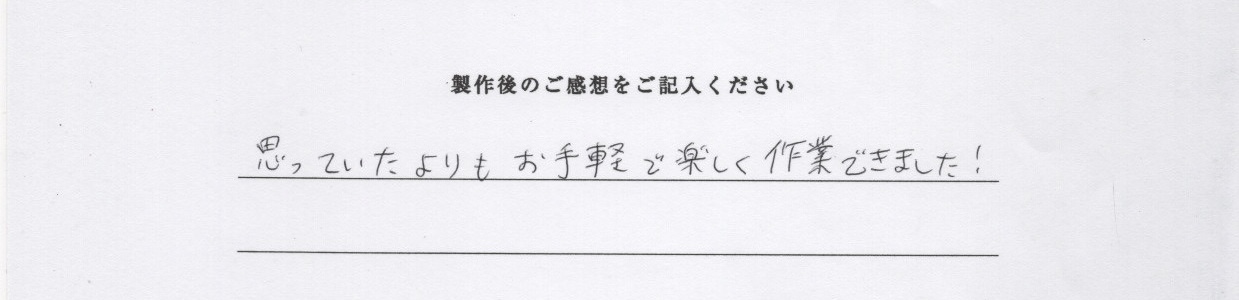 製作後のご感想をご記入ください
思っていたよりも お手軽で楽しく作業できました!